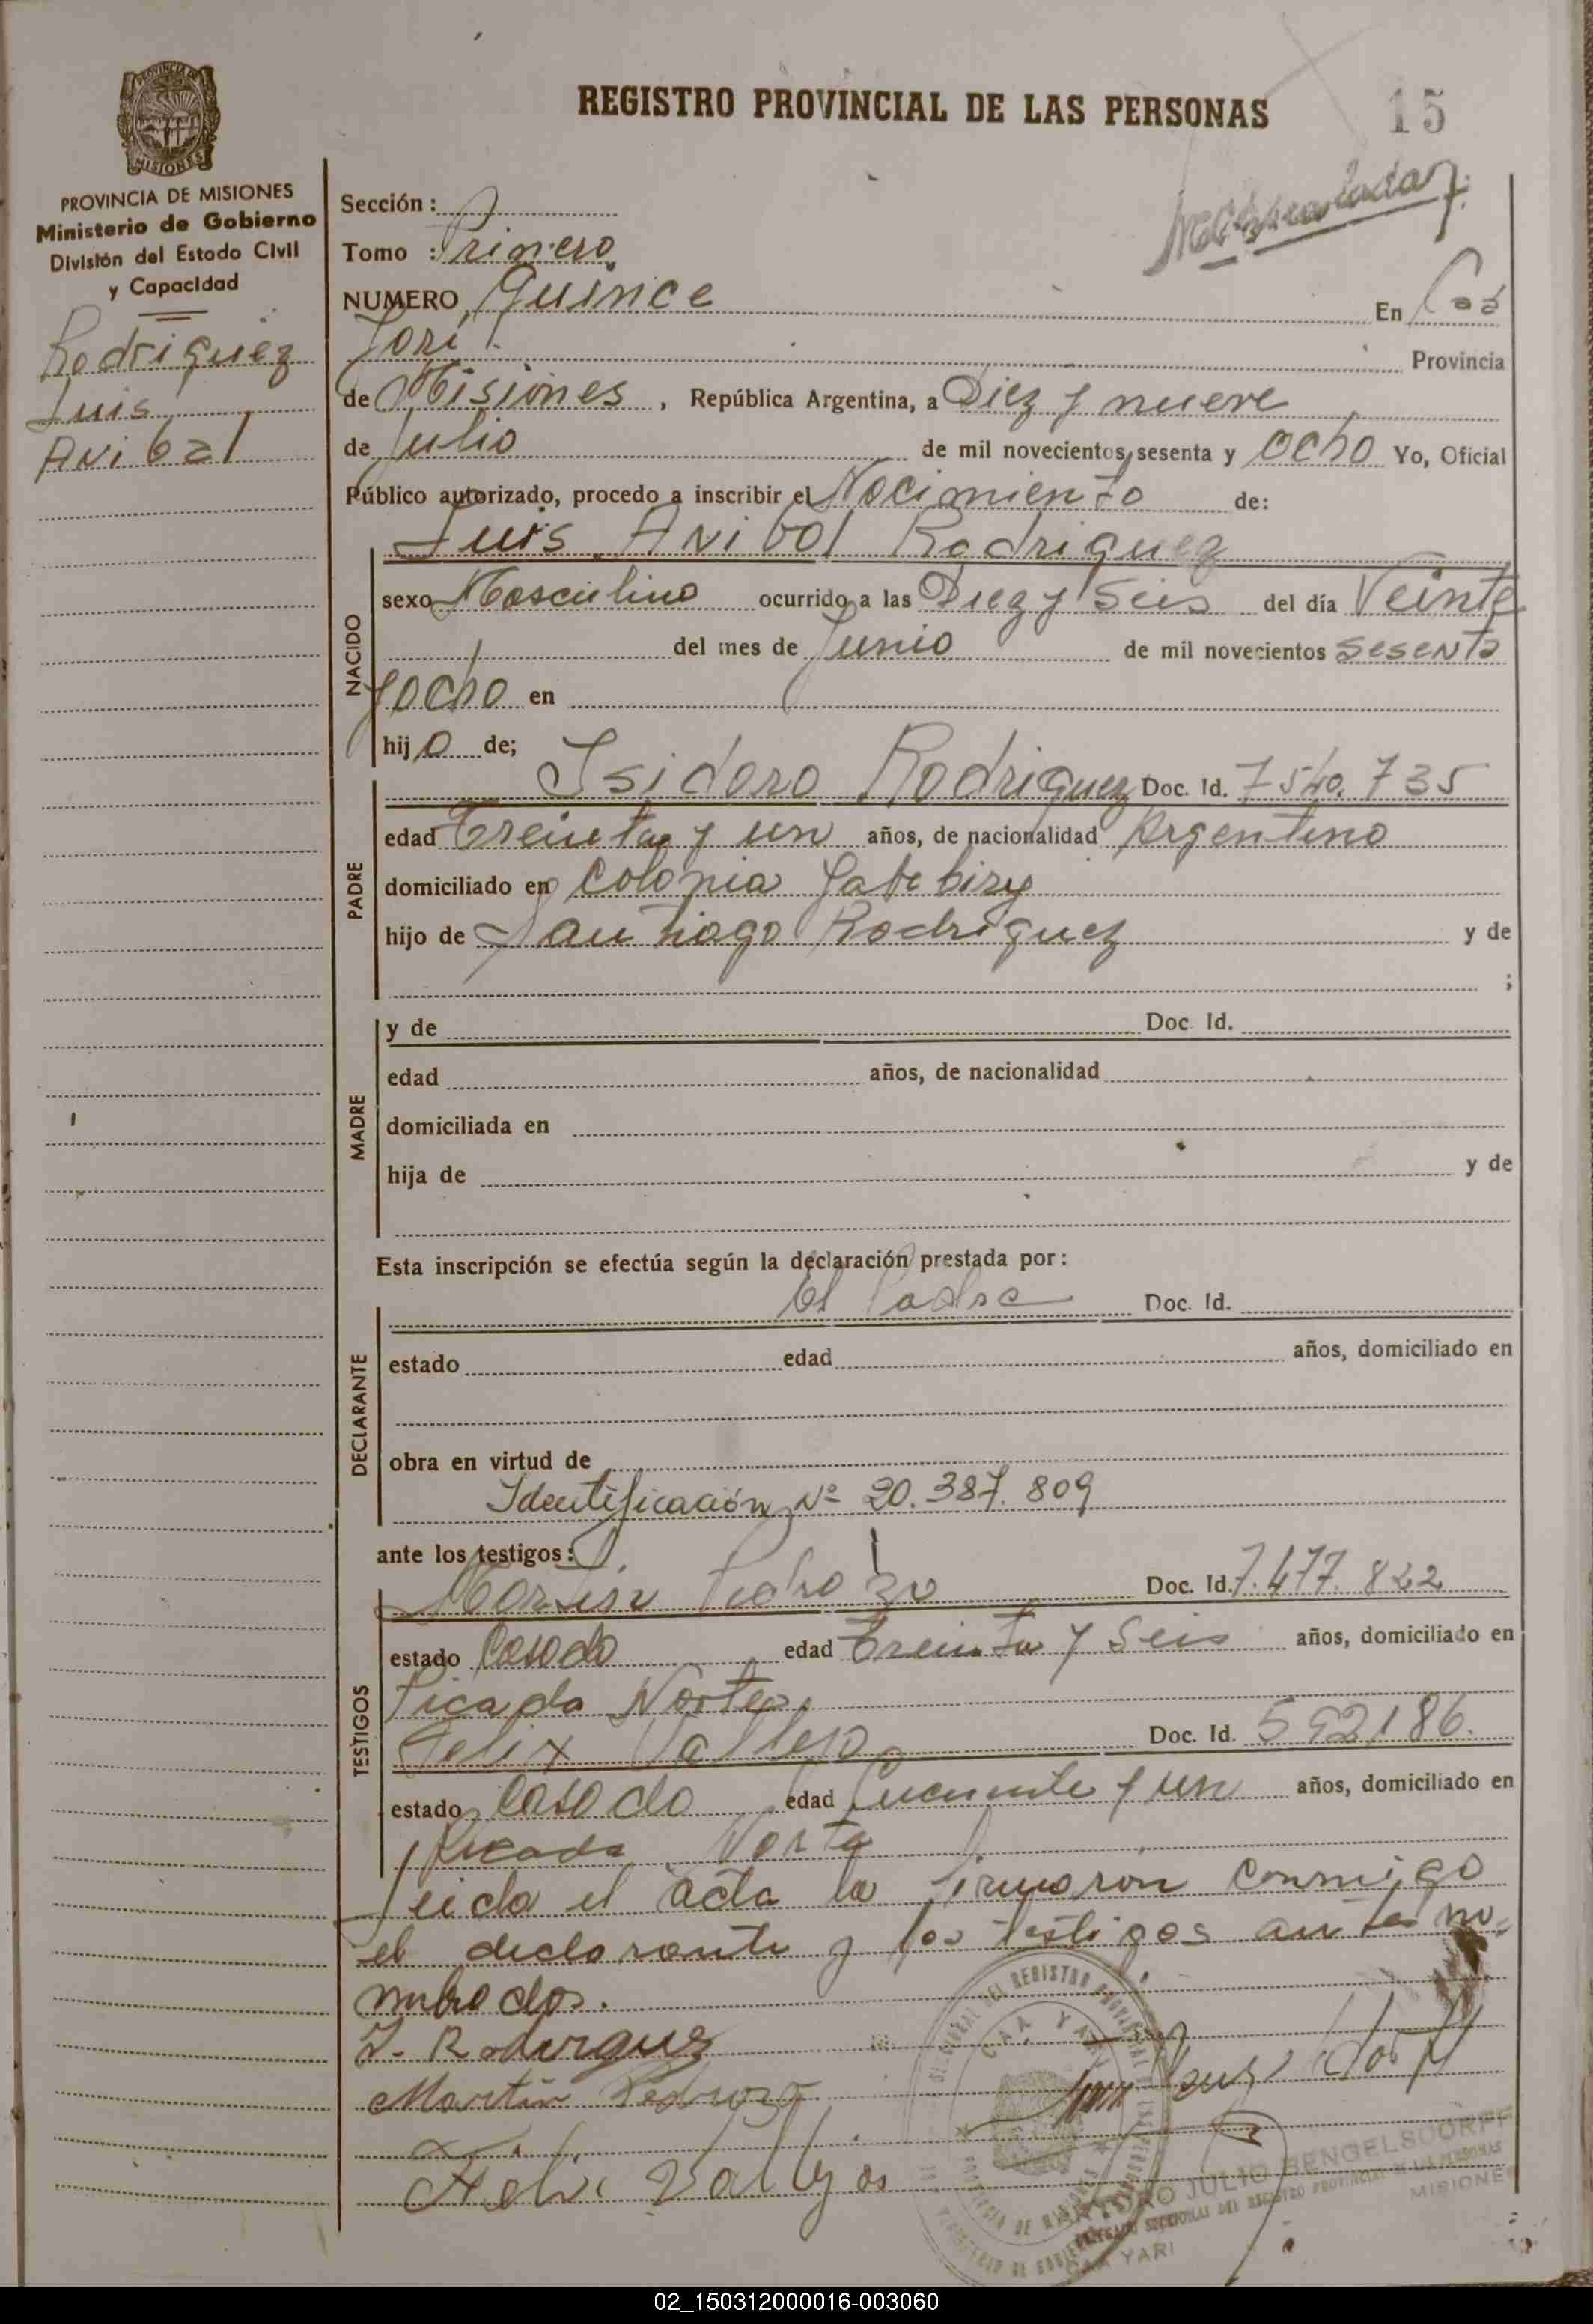 REGISTRO PROVINCIAL DE LAS PERSONAS
15
PROVINCIA DE MISIONES
PROVINCIA DE MISIONES
Ministerio de Gobierno
División del Estado Civil
y Capacidad
Rodriguez
Luis
Anibal
Sección :
Tomo : Primero
NUMERO Quince En Caá
Yarí Provincia
de Misiones , República Argentina, a Diez y nueve
de Julio de mil novecientos sesenta y ocho Yo, Oficial
Público autorizado, procedo a inscribir el Nacimiento de:
Luis Anibal Rodriguez
NACIDO
sexo Masculino ocurrido a las Diez y Seis del día Veinte
del mes de Junio de mil novecientos sesenta
y ocho en
hijo de;
PADRE
Isidoro Rodriguez Doc. Id. 7540.735
edad Treinta y un años, de nacionalidad Argentino
domiciliado en Colonia Yabebiry
hijo de Santiago Rodriguez y de
;
MADRE
y de Doc. Id.
edad años, de nacionalidad
domiciliada en
hija de y de
Esta inscripción se efectúa según la declaración prestada por :
DECLARANTE
el Padre Doc. Id.
estado edad años, domiciliado en
obra en virtud de
Identificación Nº 20.387.809
ante los testigos :
TESTIGOS
Martin Pedrozo Doc. Id. 7.477.822
estado Casado edad Treinta y Seis años, domiciliado en
Picada Norte
Felix Vallejo Doc. Id. 592186.
estado Casado edad y un años, domiciliado en
Picada Norte
Leida el acta la firmaron conmigo
el declarante y los testigos ante no=
mbrados.
I. Rodirguez
Martin Pedrozo
Felix Vallejos
CAA YARI
JULIO BENGELSDORFF
DELEGADO SECCIONAL DEL REGISTRO PROVINCIAL DE LAS PERSONAS
CAA YARI MISIONES
02_150312000016-003060